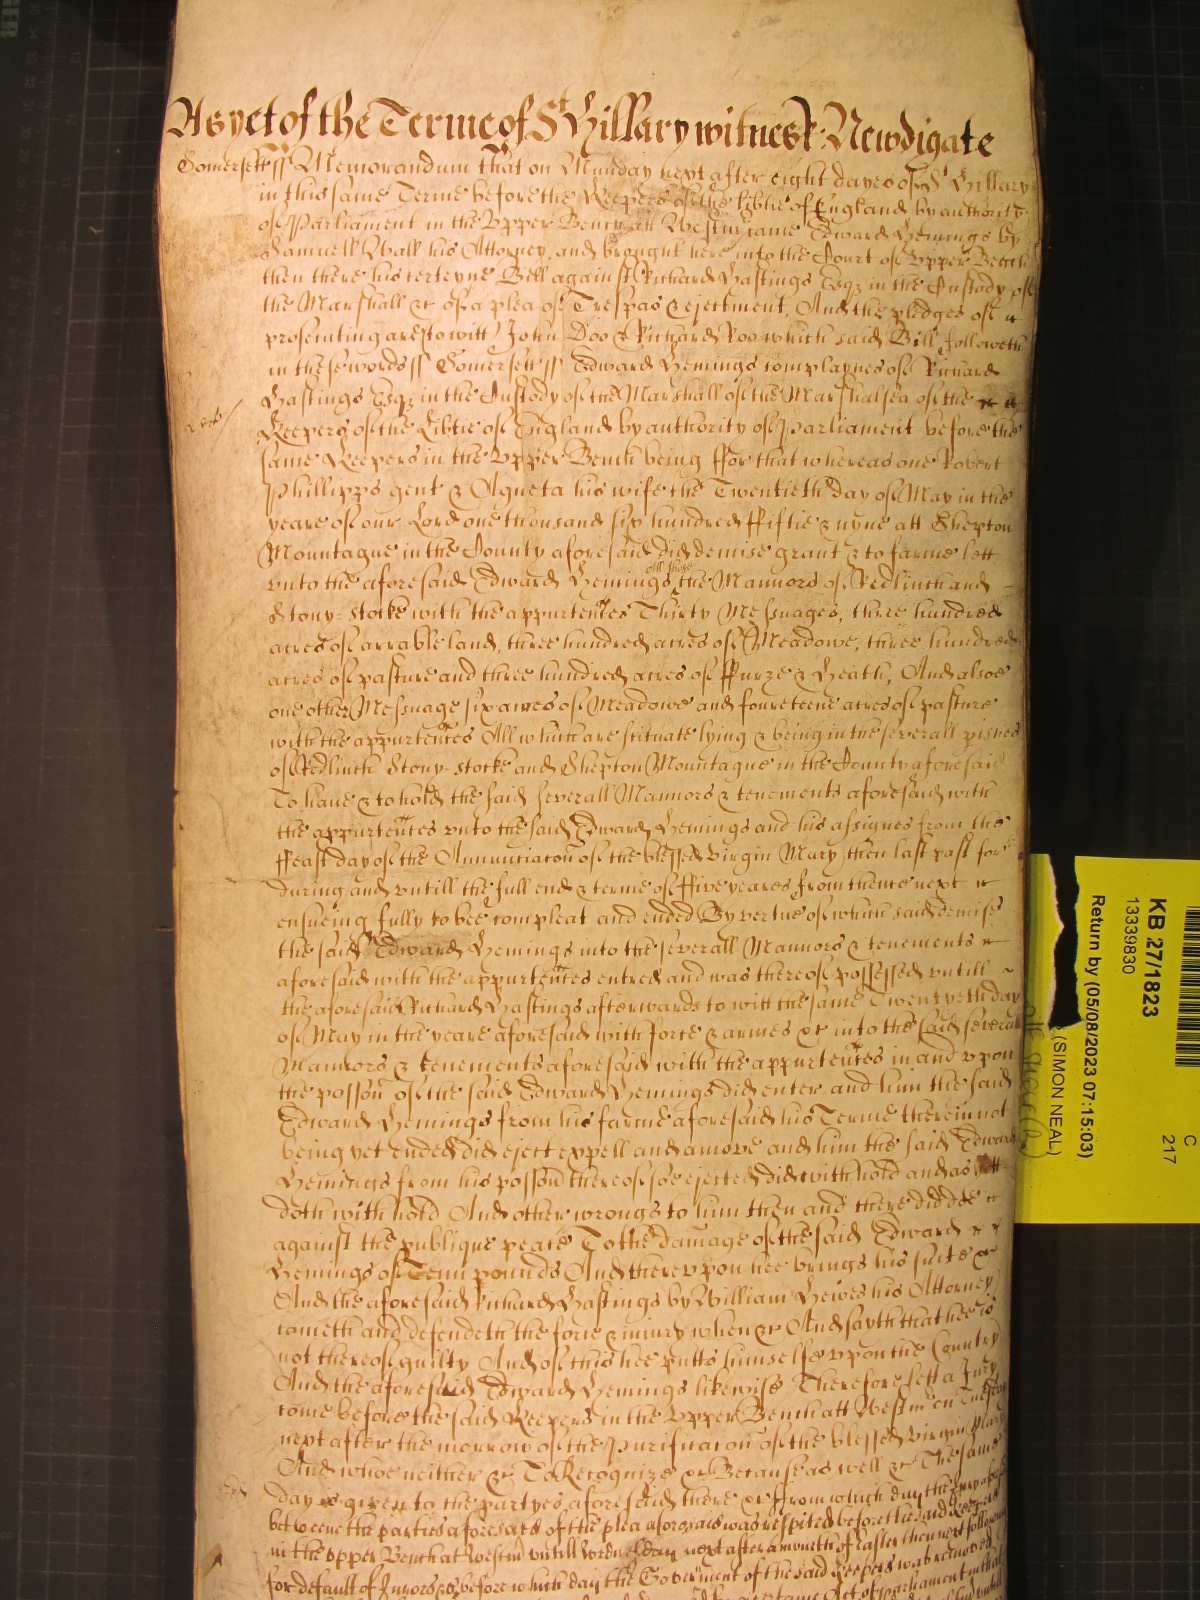 As yet of the Terme of St Hillary witnes: Newdigate
Somersett ss Memorandum that on Munday next after eight dayes of St Hillary
in this same Terme before the Keepers of the libtie of England by authority
of Parliament in the Vpper Bench att Westm came Edward Hemings by
Samuell Wall his Attorney, and brought here into the Court of Vpper Bench
then there his certeyne Bill against Richard Hastings Esqz in the Custody of
the Marshall &c of a plea of Trespas & ejectment, And the pledges of
prosecuting are (to witt) John Doo & Richard Roo which said Bill followeth
in these words ss Somersett ss Edward Hemings complaynes of Richard
Hastings Esqz in the Custody of the Marshall of the Marshalsea of the
Keepers of the Libtie of England by authority of Parliament before the
same Keepers in the Vpper Bench being ffor that whereas one Robert
Phillipps gent & Agneta his wife the Twentieth day of May in the
yeare of our Lord one thousand six hundred ffiftie & nyne att Shepton
Mountague in the County aforesaid did demise grant & to farme lett
vnto the aforesaid Edward Hemings all those the Mannors of Redlinch and
Stony-stocke with the appurtences Thirty Messuages, three hundred
acres of arrable land, three hundred acres of Meadowe, three hundred
acres of pasture and three hundred acres of ffurze & Heath, And alsoe
one other Messuage six acres of Meadowe and foureteene acres of pasture
with the appurtences All which are scituate lying & being in the severall pishes
of Redlinch Stony-stocke and Shepton Mountague in the County aforesaid
To haue & to hold the said severall Mannors & tenements aforesaid with
the appurtences vnto the said Edward Hemings and his assignes from the
ffeast day of the Annunciacon of the blessed virgin Mary then last past for
during and vntill the full end & terme of ffive yeares from thence next
ensueing fully to bee compleat and ended By vertue of which said demise
the said Edward Hemings into the severall Mannors & tenements
aforesaid with the appurtences entred and was thereof possessed vntill
the aforesaid Richard Hastings afterwards to witt the same Twentyeth day
of May in the yeare aforesaid with force & armes &c into the said severall
Mannors & tenements aforesaid with the appurtences in and vpon
the posson of the said Edward Hemings did enter and him the said
Edward Hemings from his farme aforesaid his Terme therein not
being yet ended did eject expell and amove and him the said Edward
Hemings from his posson thereof soe ejected did with hold and as yett
doth with hold And other wrongs to him then and there did doe
against the publique peace To the damage of the said Edward
Hemings of Tenn pounds And therevpon hee brings his suite &c
And the aforesaid Richard Hastings by William Hewes his Attorney
cometh and defendeth the force & iniury when &c And sayth that hee is
not thereof guilty And of this hee putts himselfe vpon the Country
And the aforesaid Edward Hemings likewise Therefore lett a Jury
come before the said Keepers in the Vpper Bench att Westm on Tuesday
next after the morrow of the Purificacon of the blessed virgin Mary
And whoe neither &c To Recognize &c Because as well &c The same
day is given to the partyes aforesaid there &c from which day the Jury aforesaid
betweene the parties aforesaid of the plea aforesaid was respited before the said Keepers
in the vpper Bench at Westm vntill Wednesday next after a moneth of Easter then next following
for default of Jurors &c before which day the Government of the said Keepers was removed
Act of Parliament
KB 27/1823
13339830
Return by (05/08/2023 07:15:03)
(SIMON NEAL)
C
217